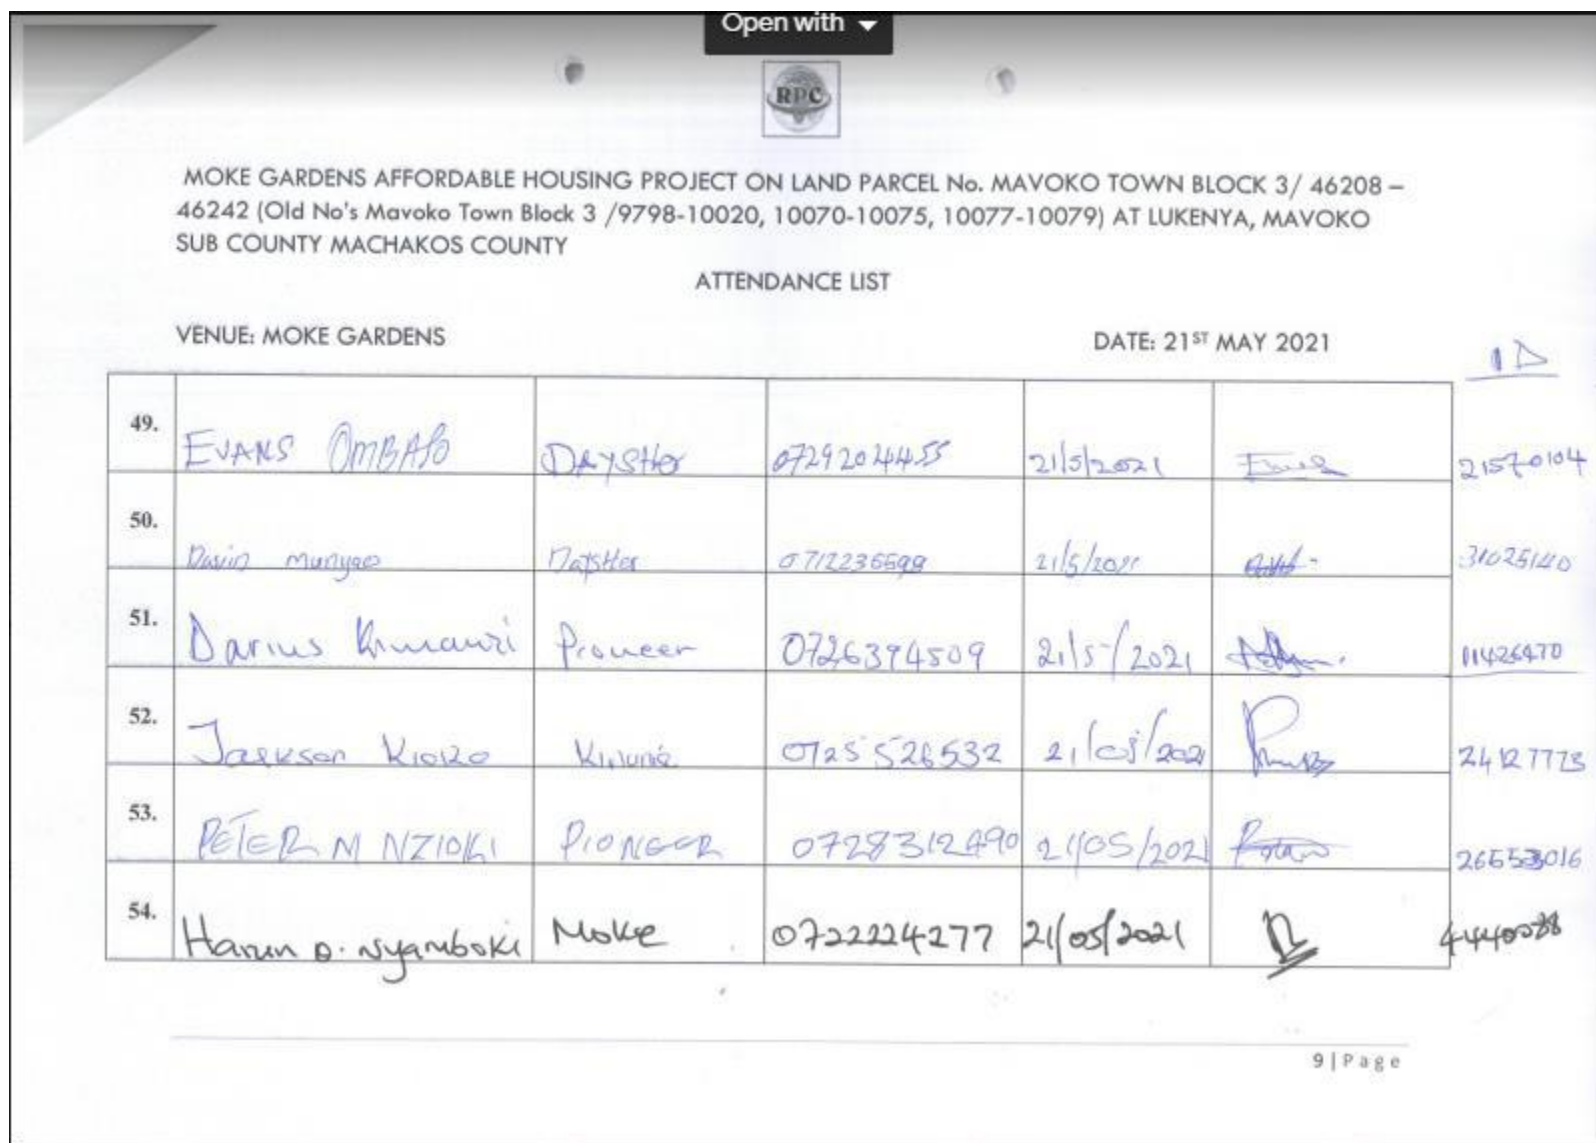 Open with
RPC
MOKE GARDENS AFFORDABLE HOUSING PROJECT ON LAND PARCEL No. MAVOKO TOWN BLOCK 3/ 46208 –
46242 (Old No's Mavoko Town Block 3 /9798-10020, 10070-10075, 10077-10079) AT LUKENYA, MAVOKO
SUB COUNTY MACHAKOS COUNTY
ATTENDANCE LIST
VENUE: MOKE GARDENS DATE: 21ST MAY 2021
ID
49. EVANS 0729204455 21/5/2021 21570104
50. munyao 21/5/2021
51. Darius Pioneer 0726394509 21/5/2021 11426470
52. Jackson 0725526532 21/05/2021 24127773
53. PETER M NZIOKI PIONEER 0728312490 21/05/2021
54. Harun O. Nyamboki Moke 0722224277 21/05/2021
9 | Page